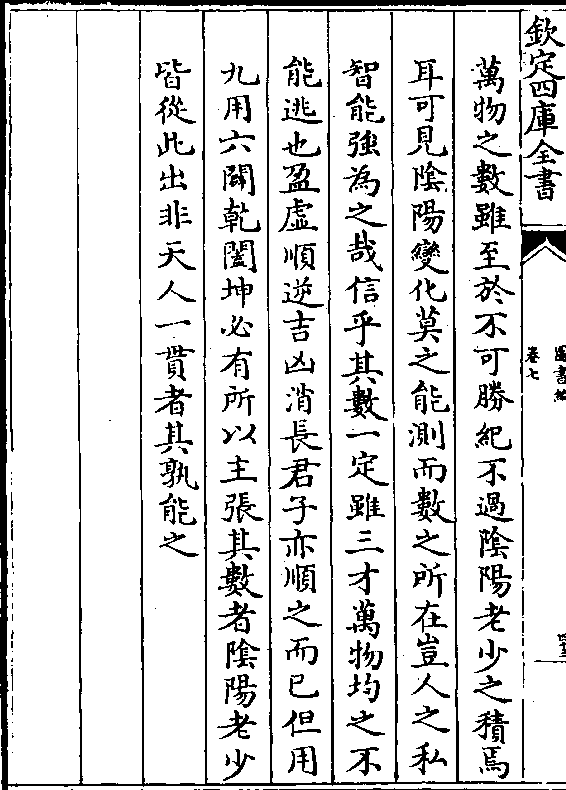 欽定四庫全書
圖書編
卷七
萬物之數雖至於不可勝紀不過陰陽老少之積焉
耳可見陰陽變化莫之能測而數之所在豈人之私
智能強為之哉信乎其數一定雖三才萬物均之不
能逃也盈虛順逆吉凶消長君子亦順之而已但用
九用六闢乾闔坤必有所以主張其數者陰陽老少
皆從此出非天人一貫者其孰能之